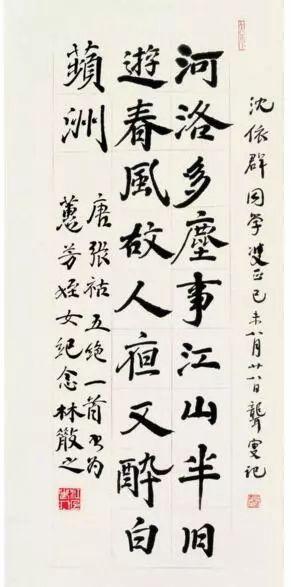 沈依群同学 正己未八月廿八日龔 记
河洛多塵事江山半旧
遊春風故人夜又醉白
蘋洲
唐張祜五绝一首书为
蕙芳姪女纪念林散之